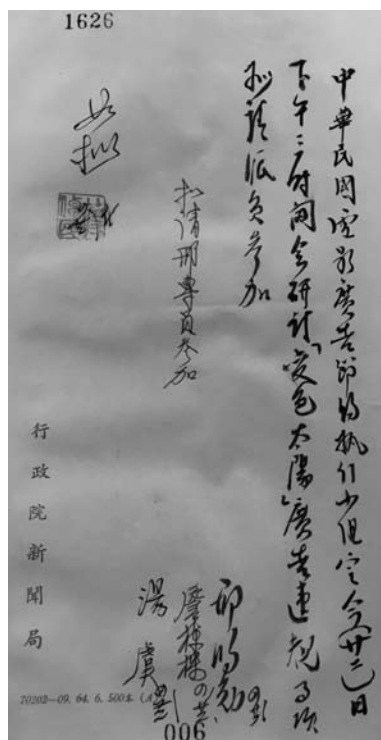 1626
中華民國電影廣告節約執行小組定今(廿二)日
下午二時開會研討「變色太陽」廣告違規事項
擬請派員參加
擬請邢專員參加
如擬
行政院新聞局
70202—09. 64. 6. 500本. (A
006